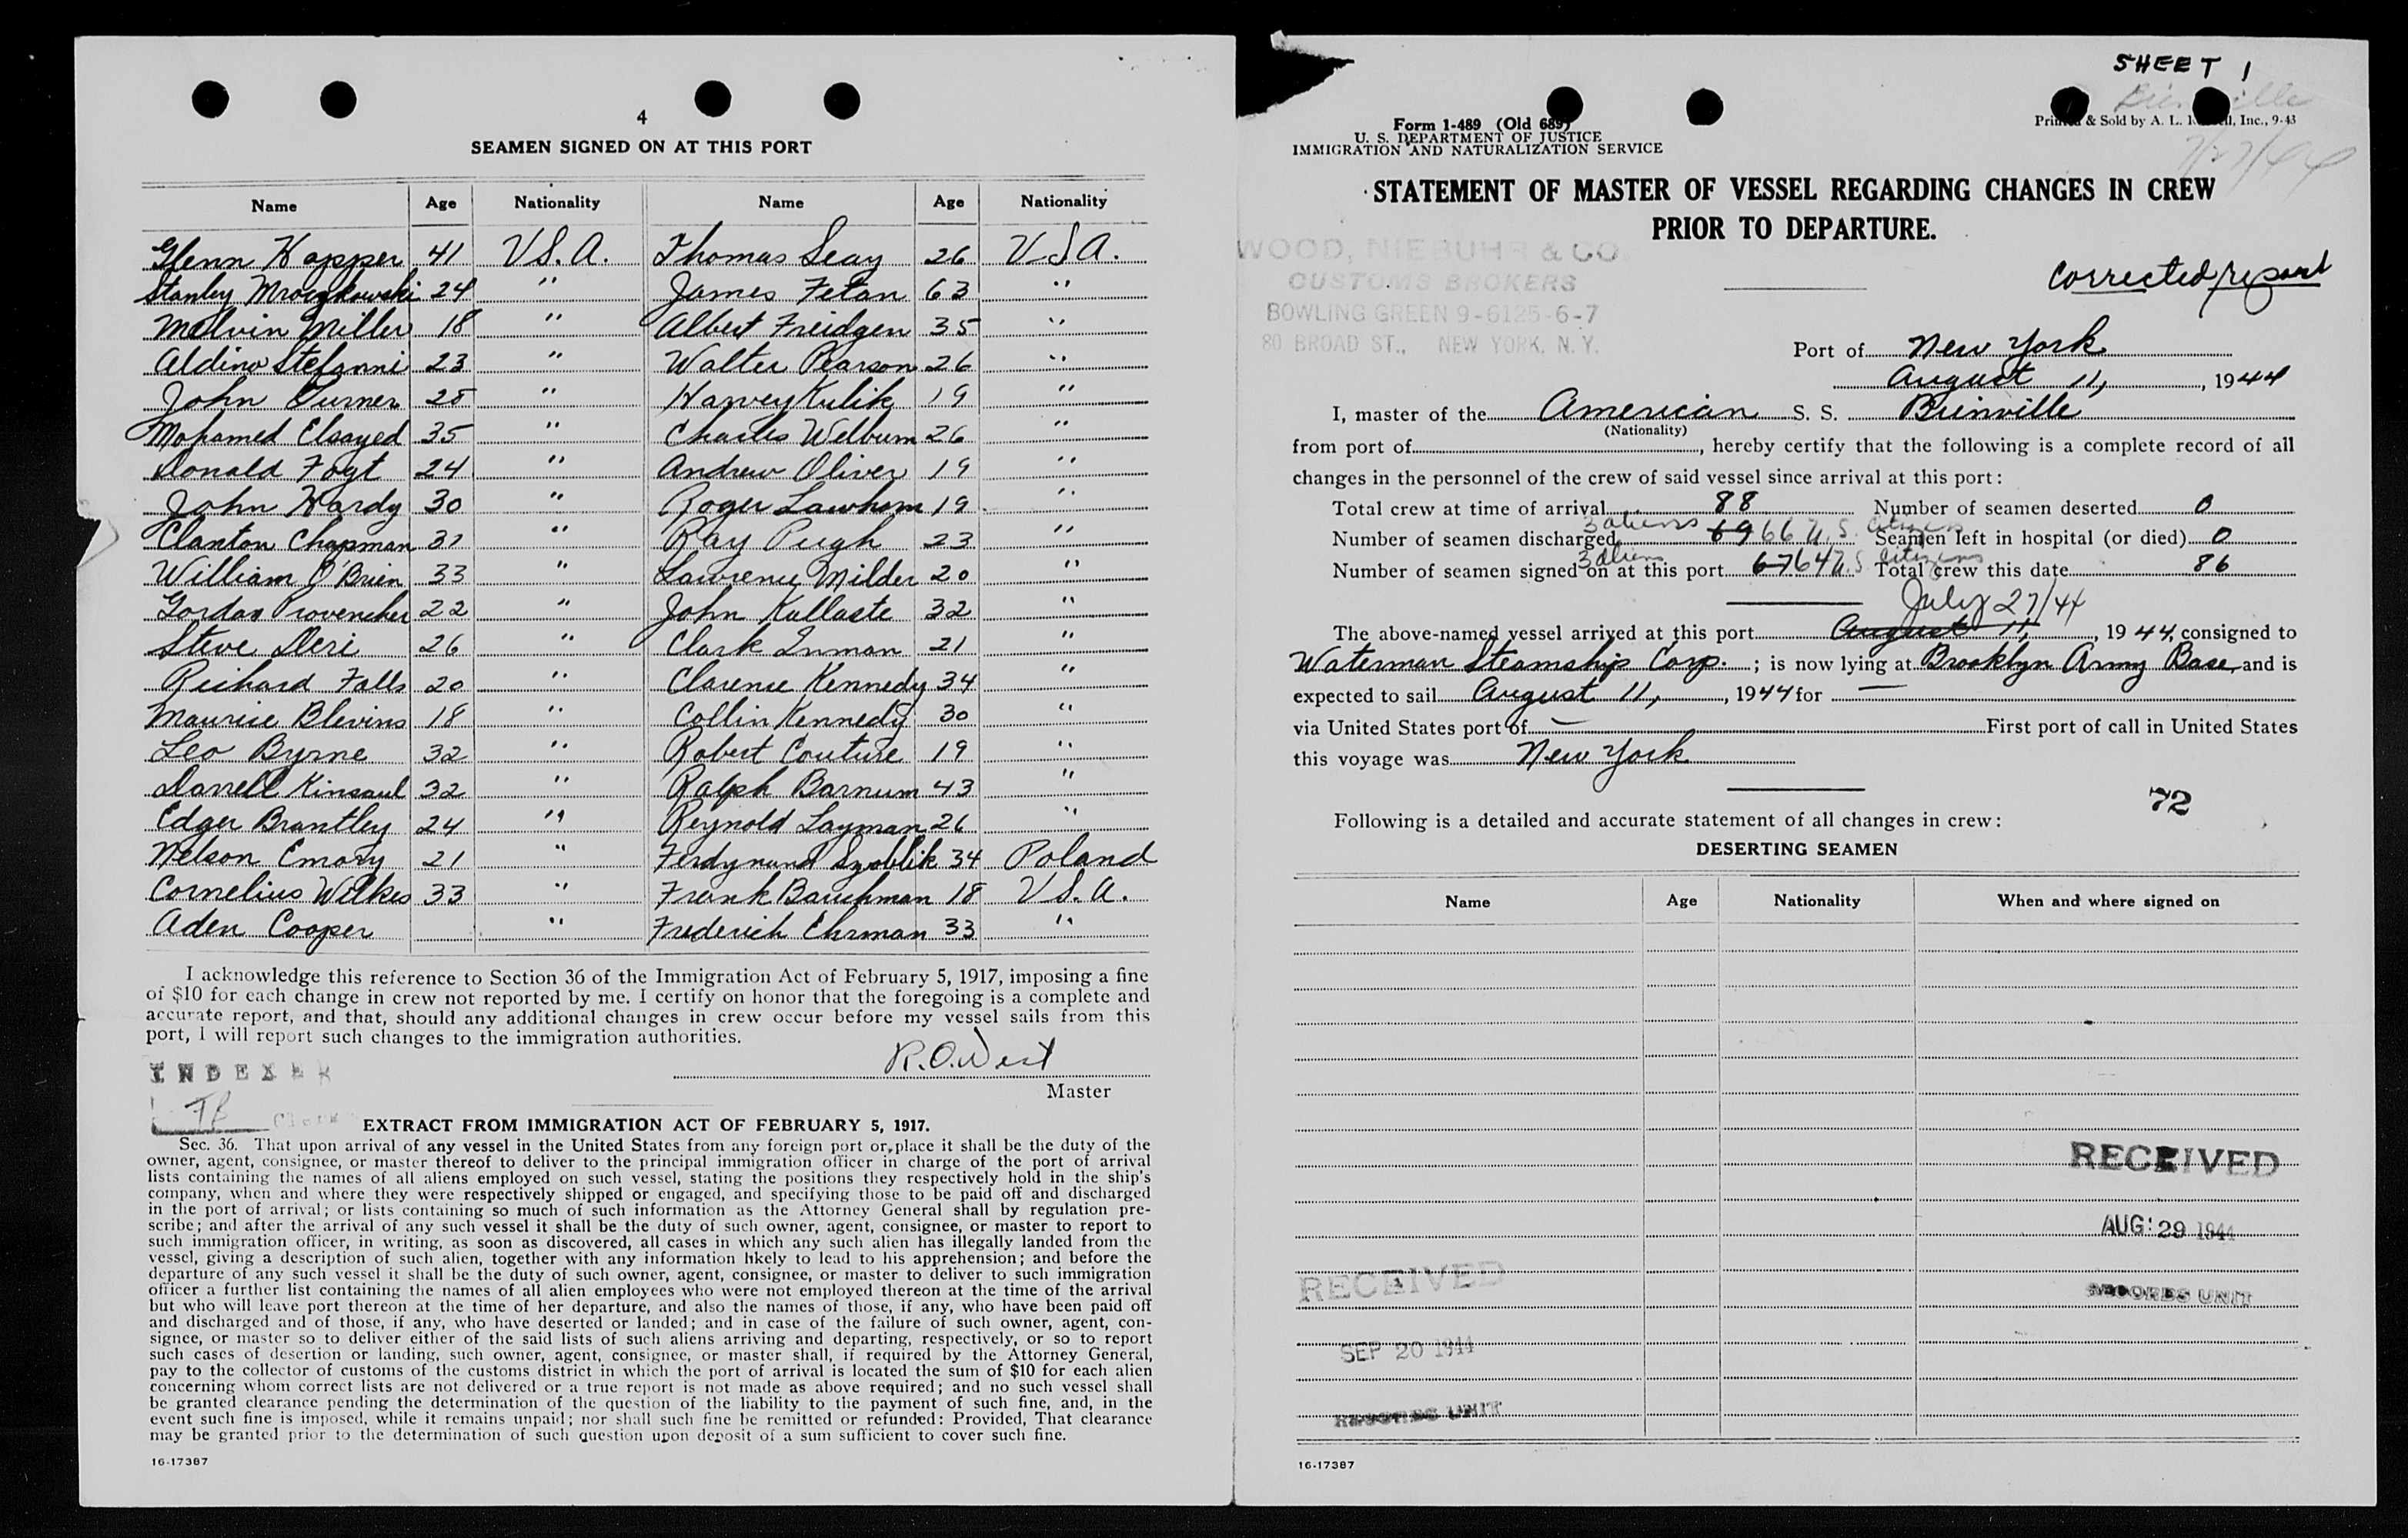 4
SEAMEN SIGNED ON AT THIS PORT
Name Age Nationality Name Age Nationality
Glenn Hopper 41 U.S.A. Thomas Seay 26 U.S.A.
Stanley Mroczkowski 24 " James Felan 63 "
Melvin Miller 18 " Albert Freidgen 35 "
Aldino Stefanni 23 " Walter Pearson 26 "
John Turner 25 " Harvey Kulik 19 "
Mohamed Elsayed 35 " Charles Welburn 26 "
Donald Fogt 24 " Andrew Oliver 19 "
John Hardy 30 " Roger Lawhorn 19 "
Clanton Chapman 31 " Ray Pugh 23 "
William O'Brien 33 " Lawrence Milder 20 "
Gordon Provencher 22 " John Kallaste 32 "
Steve Deri 26 " Clark Inman 21 "
Richard Falls 20 " Clarence Kennedy 34 "
Maurice Blevins 18 " Collin Kennedy 30 "
Leo Byrne 32 " Robert Couture 19 "
Darrell Kinsaul 32 " Ralph Barnum 43 "
Edger Brantley 24 " Reynold Layman 26 "
Nelson Emory 21 " Ferdynand Szoblik 34 Poland
Cornelius Wilkes 33 " Frank Bauchman 18 U.S.A.
Aden Cooper " Frederich Ehrman 33 "
I acknowledge this reference to Section 36 of the Immigration Act of February 5, 1917, imposing a fine
of $10 for each change in crew not reported by me. I certify on honor that the foregoing is a complete and
accurate report, and that, should any additional changes in crew occur before my vessel sails from this
port, I will report such changes to the immigration authorities.
R.O. West
Master
INDEXER
Clerk
EXTRACT FROM IMMIGRATION ACT OF FEBRUARY 5, 1917.
Sec. 36. That upon arrival of any vessel in the United States from any foreign port or place it shall be the duty of the
owner, agent, consignee, or master thereof to deliver to the principal immigration officer in charge of the port of arrival
lists containing the names of all aliens employed on such vessel, stating the positions they respectively hold in the ship's
company, when and where they were respectively shipped or engaged, and specifying those to be paid off and discharged
in the port of arrival; or lists containing so much of such information as the Attorney General shall by regulation pre-
scribe; and after the arrival of any such vessel it shall be the duty of such owner, agent, consignee, or master to report to
such immigration officer, in writing, as soon as discovered, all cases in which any such alien has illegally landed from the
vessel, giving a description of such alien, together with any information likely to lead to his apprehension; and before the
departure of any such vessel it shall be the duty of such owner, agent, consignee, or master to deliver to such immigration
officer a further list containing the names of all alien employees who were not employed thereon at the time of the arrival
but who will leave port thereon at the time of her departure, and also the names of those, if any, who have been paid off
and discharged and of those, if any, who have deserted or landed; and in case of the failure of such owner, agent, con-
signee, or master so to deliver either of the said lists of such aliens arriving and departing, respectively, or so to report
such cases of desertion or landing, such owner, agent, consignee, or master shall, if required by the Attorney General,
pay to the collector of customs of the customs district in which the port of arrival is located the sum of $10 for each alien
concerning whom correct lists are not delivered or a true report is not made as above required; and no such vessel shall
be granted clearance pending the determination of the question of the liability to the payment of such fine, and, in the
event such fine is imposed, while it remains unpaid; nor shall such fine be remitted or refunded: Provided, That clearance
may be granted prior to the determination of such question upon deposit of a sum sufficient to cover such fine.
16-17387
SHEET 1
Bienville
7/27/44
Form 1-489 (Old 689)
U. S. DEPARTMENT OF JUSTICE
IMMIGRATION AND NATURALIZATION SERVICE
Printed & Sold by A. L. Inc., 9-43
STATEMENT OF MASTER OF VESSEL REGARDING CHANGES IN CREW
PRIOR TO DEPARTURE.
WOOD, NIEBUHR & CO
CUSTOMS BROKERS
BOWLING GREEN 9-6125-6-7
80 BROAD ST., NEW YORK, N. Y.
Corrected report
Port of New York
August 11, 1944
I, master of the American S. S. Bienville
(Nationality)
from port of , hereby certify that the following is a complete record of all
changes in the personnel of the crew of said vessel since arrival at this port:
Total crew at time of arrival 88 Number of seamen deserted 0
Number of seamen discharged 3 aliens 69 66 U.S. citizens Seamen left in hospital (or died) 0
Number of seamen signed on at this port 3 aliens 67 64 U.S citizens Total crew this date 86
July 27/44
The above-named vessel arrived at this port August 11, 1944, consigned to
Waterman Steamship Corp. ; is now lying at Brooklyn Army Base, and is
expected to sail August 11, , 1944 for —
via United States port of — First port of call in United States
this voyage was New York
72
Following is a detailed and accurate statement of all changes in crew:
DESERTING SEAMEN
Name Age Nationality When and where signed on
RECEIVED
AUG 29 1944
RECORDS UNIT
RECEIVED
SEP 20 1944
RECORDS UNIT
16-17387